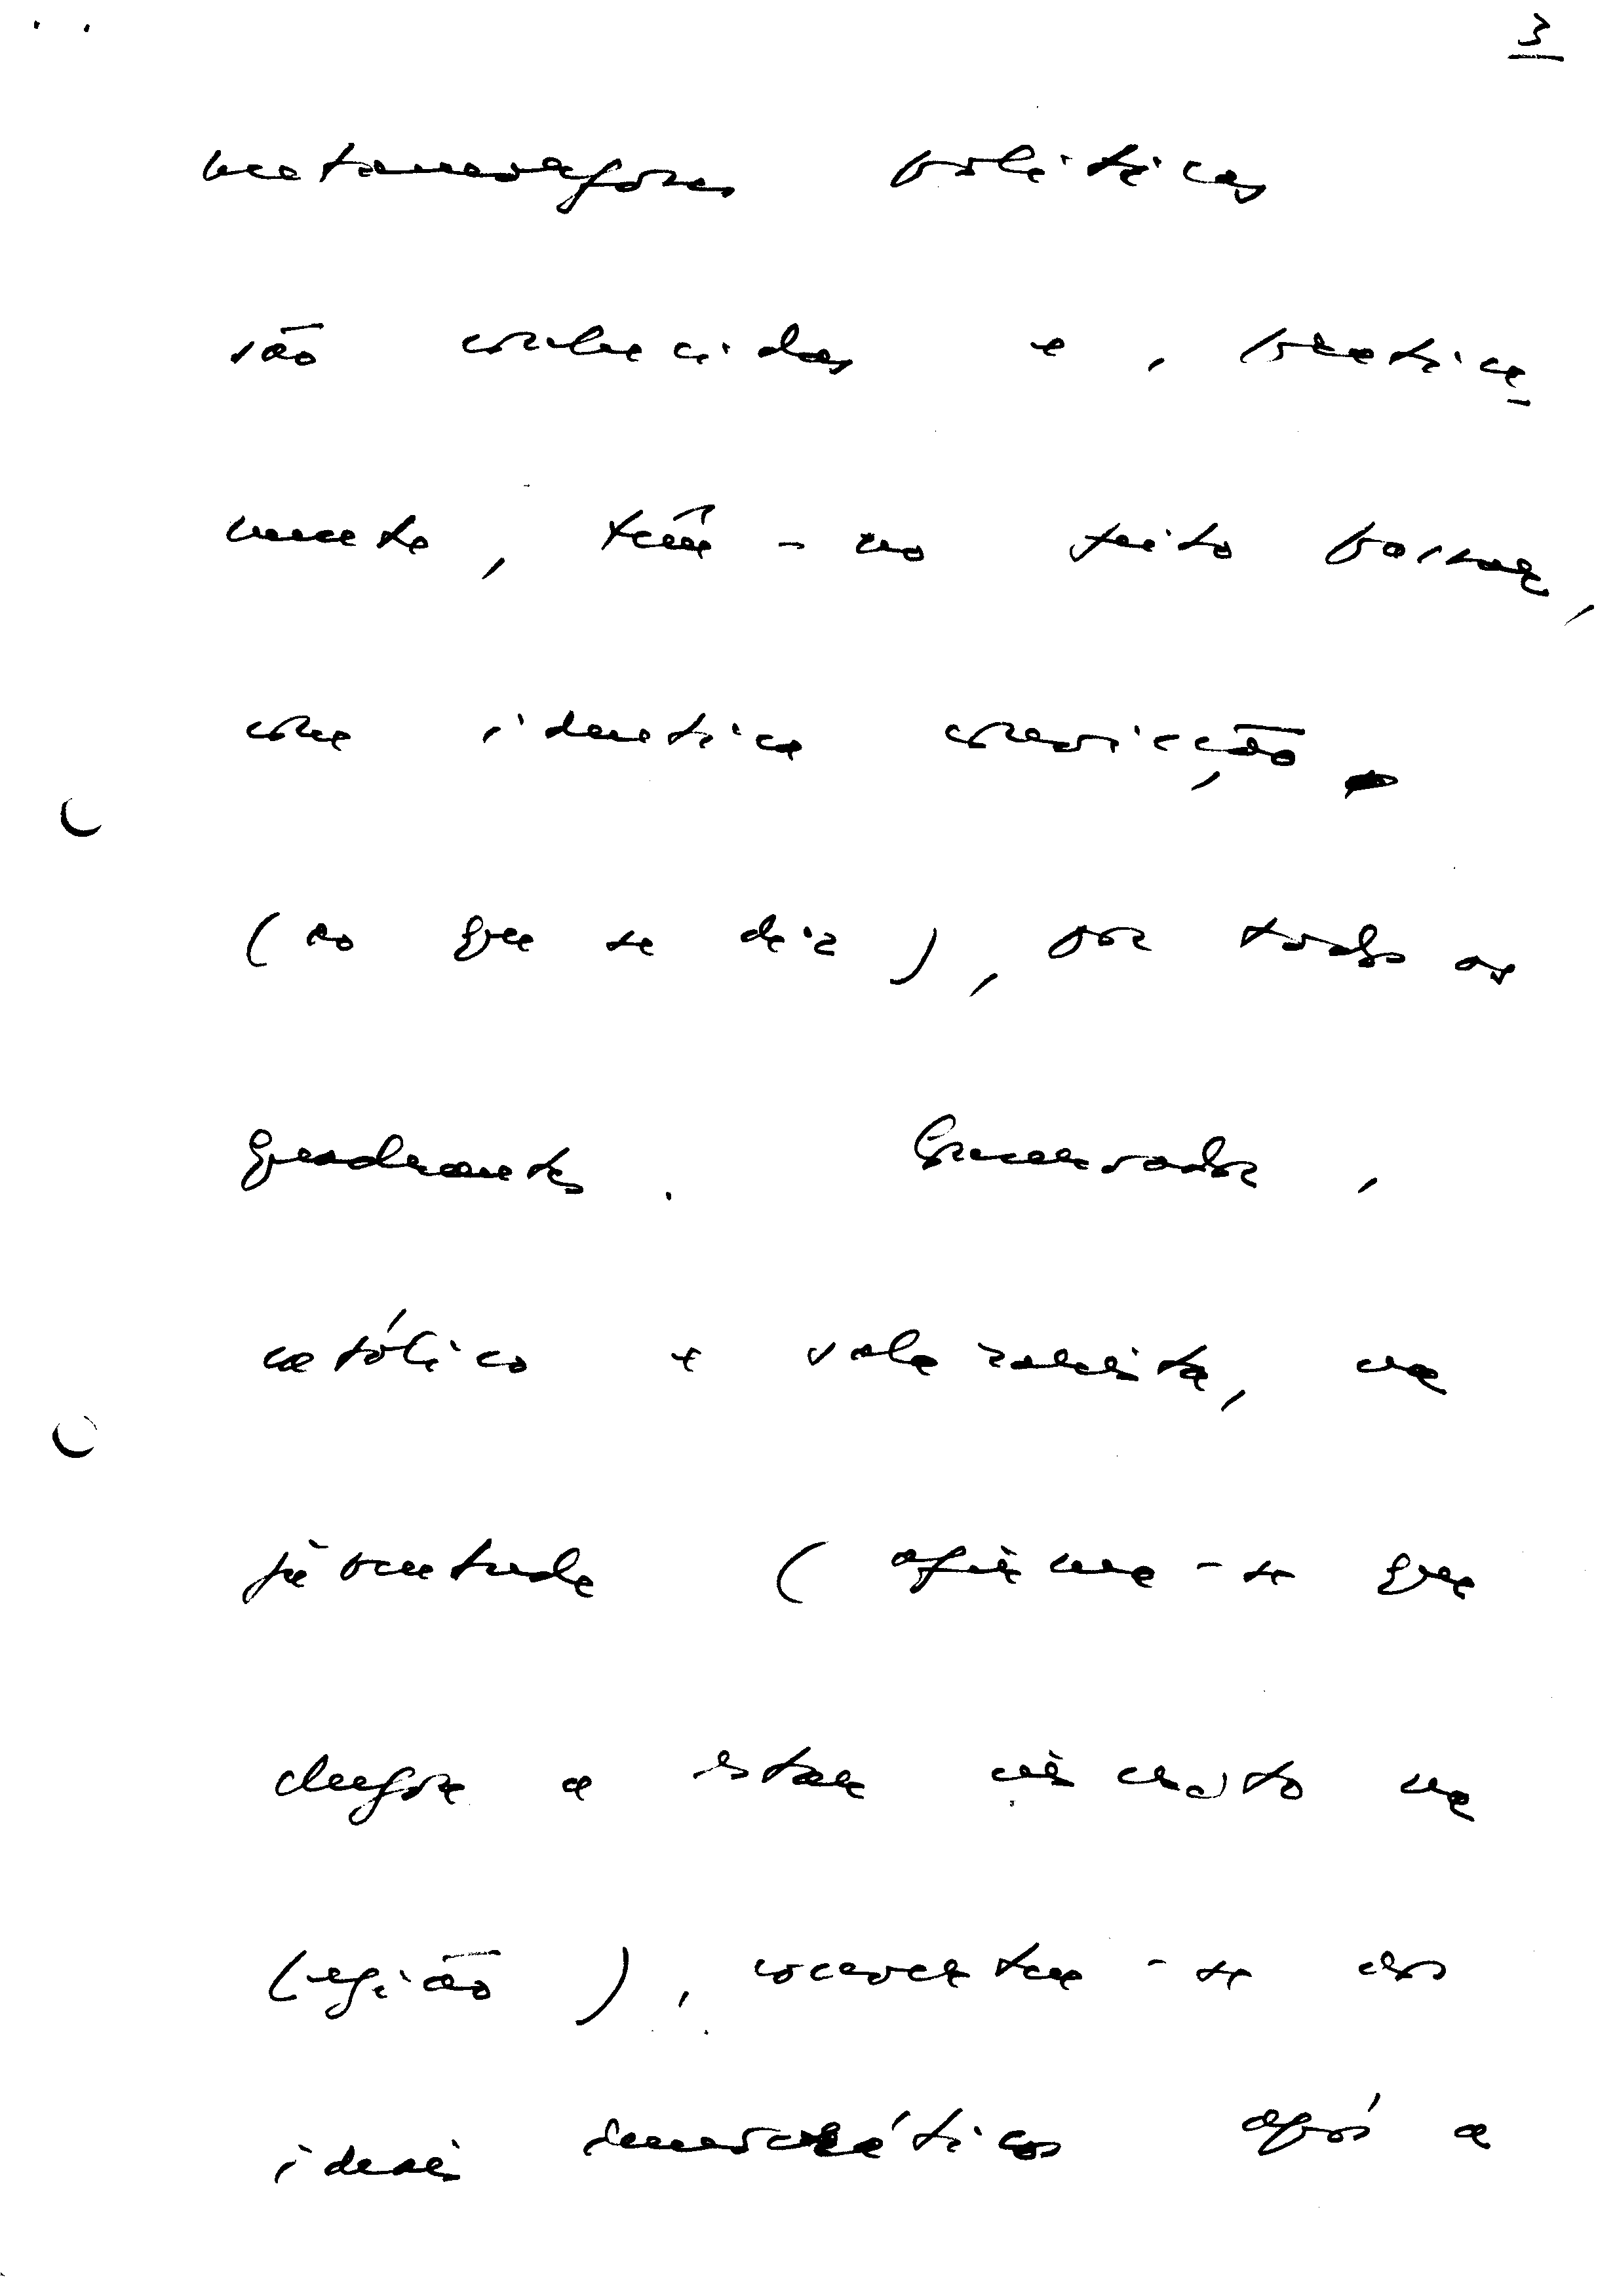 3
metamorfoses políticas
são conhecidas e, pratica
mente, têm-no feito passar,
com identica convicção
(ao que se diz), por todos os
quadrantes. Conservador,
católico e salazarista, na
juventude (afirma-se que
chegou a estar inscrito na
Legião), converteu-se aos
ideais democráticos após a